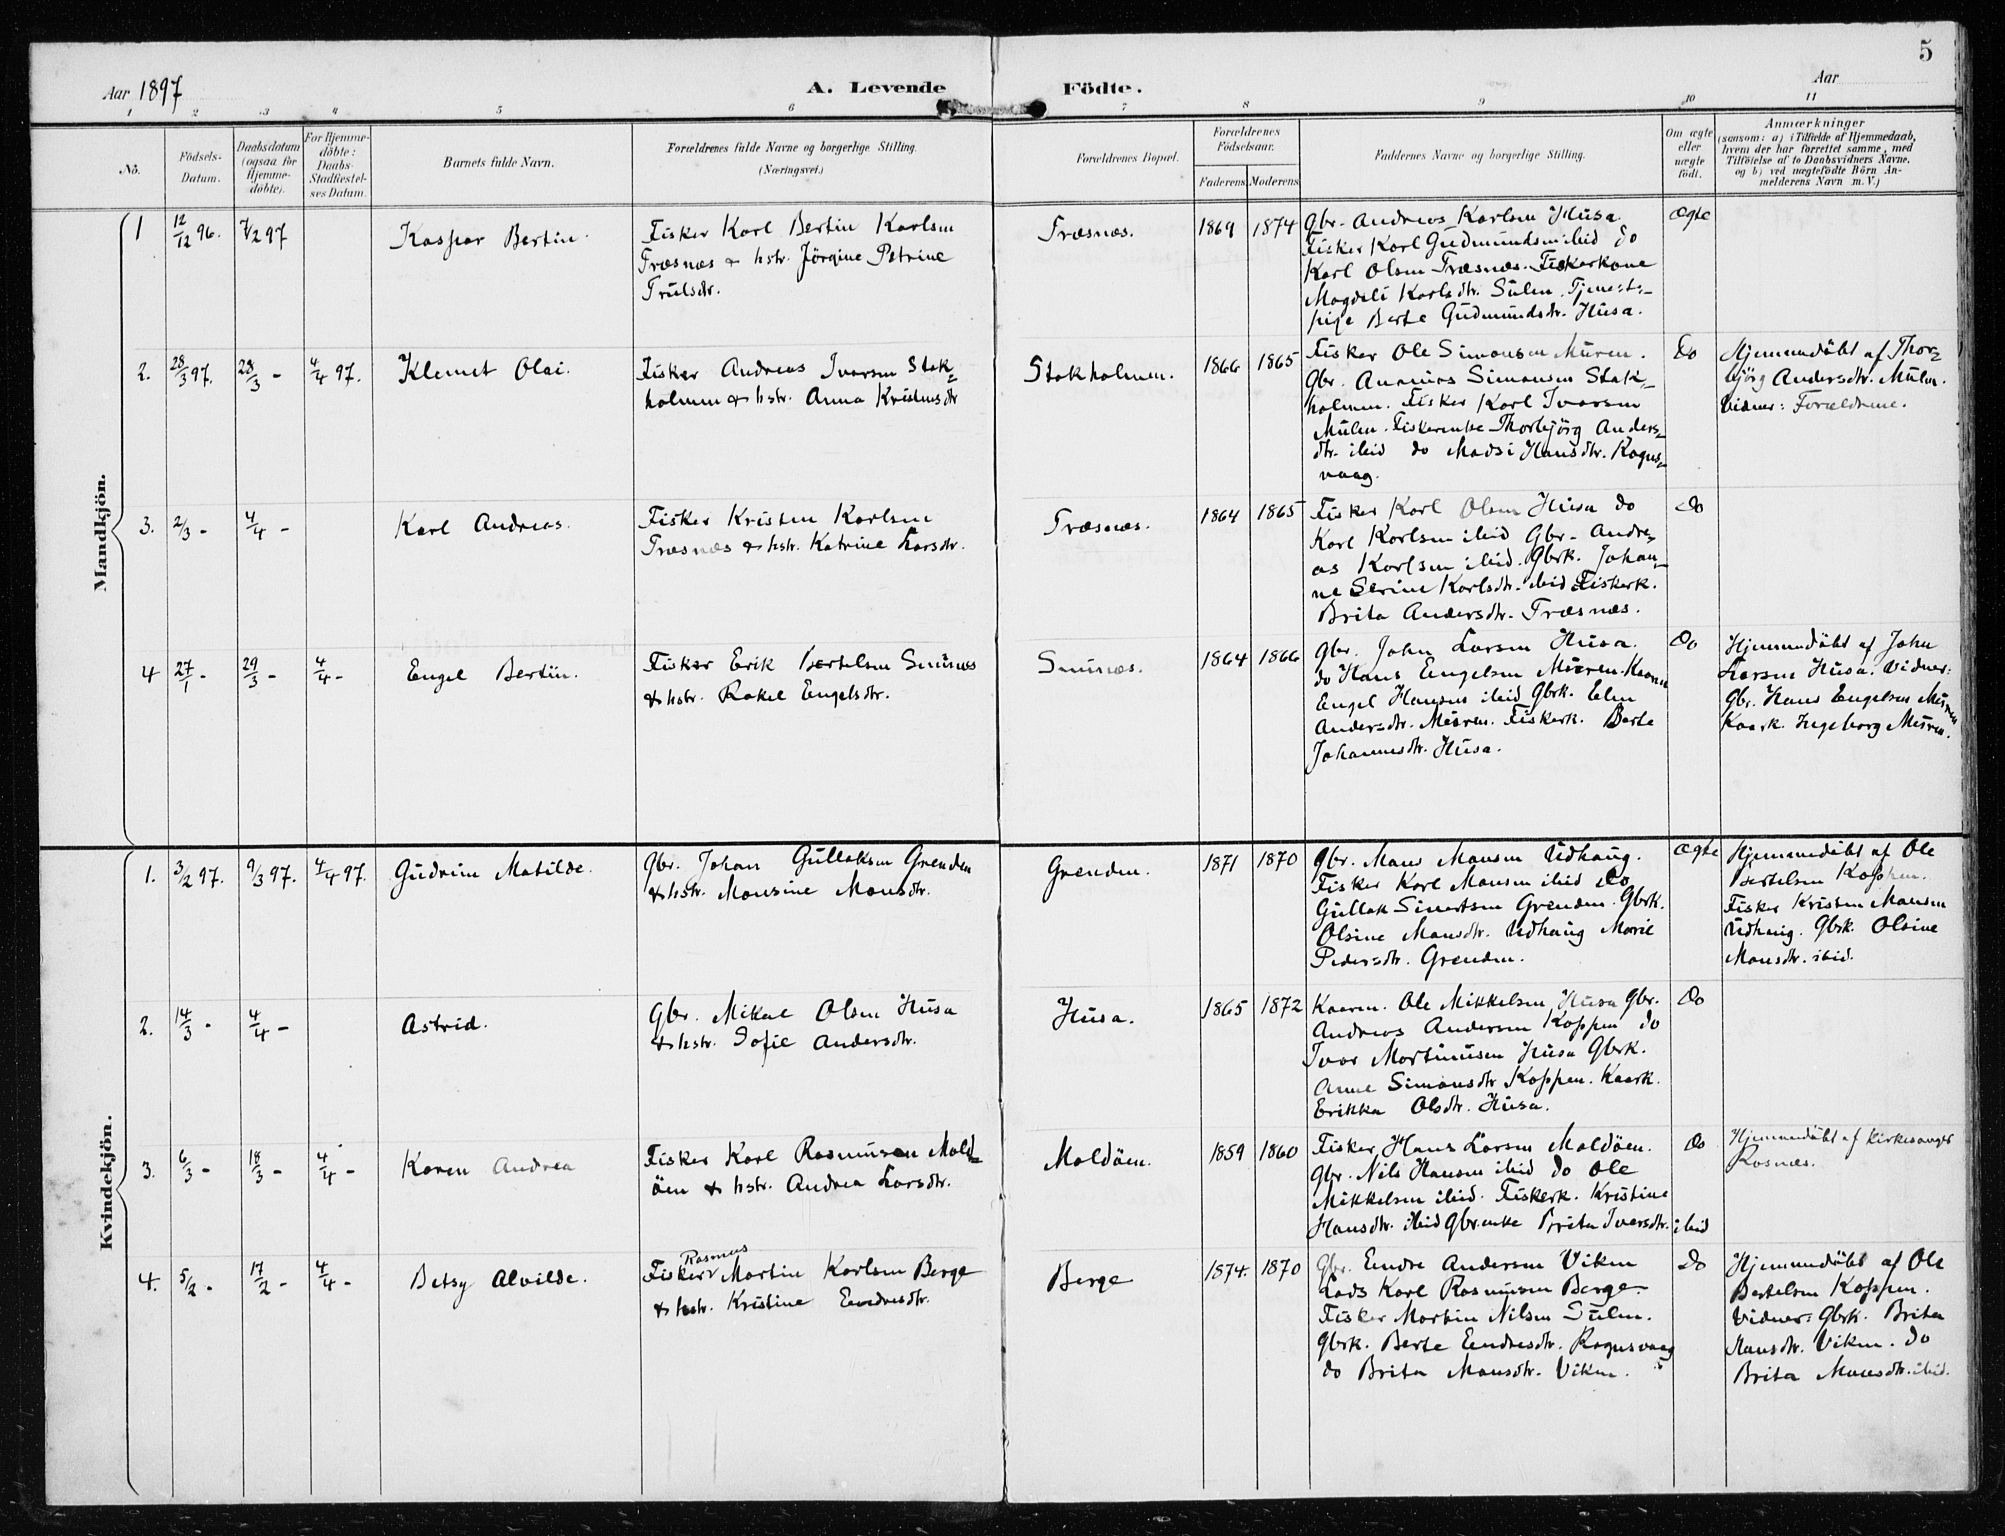 5
Aar 1897
A. Levende Födte.
Aar
1 2 3 4 5 6 7 8 9 10 11
No.
Födsels-
Datum.
Daabsdatum
(ogsaa for
Hjemme-
döbte).
For Hjemme-
döbte:
Daabs-
Stadfæstel-
ses Datum.
Barnets fulde Navn.
Forældrenes fulde Navne og borgerlige Stilling.
(Næringsvei.)
Forældrenes Bopæl.
Forældrenes
Födselsaar.
Faderens Moderens
Faddernes Navne og borgerlige Stilling.
Om ægte
eller
uægte
födt.
Anmærkninger
(saasom: a) i Tilfælde af Hjemmedaab,
hvem der har forrettet samme, med
Tilföielse af to Daabsvidners Navne,
og b) ved uægtefödte Börn An-
melderens Navn m. V.)
Mandkjön.
1
12/12 96.
7/2 97
Kaspar Bertin.
Fisker Karl Bertin Karlsen
Træsnæs & hstr. Jörgine Petrine
Trulsdtr.
Træsnæs.
1869 1874
Gbr. Andreas Karlsen Husa
Fisker Karl Gudmundsen ibid do
Karl Olsen Træsnæs. Fiskerkone
Magdeli Karlsdtr. Sulen. Tjeneste-
pige Berte Gudmundsdtr. Husa.
Ægte
2.
28/3 97.
28/3 -
4/4 97.
Klemet Olai.
Fisker Andreas Ivarsen Stok-
holmen & hstr. Anna Kristensdtr
Stokholmen.
1866 1865
Fisker Ole Simonsen Muren.
Gbr. Ananias Simonsen Stok-
holmen. Fisker Karl Ivarsen
Mulen. Fiskerenke Thorbjörg Anders-
dtr. ibid do Madsi Hansdtr. Rogns-
vaag.
Do
Hjemmedöbt af Thor-
björg Andersdtr. Mulen.
Vidner: Forældrene.
3.
2/3 -
4/4 -
Karl Andreas.
Fisker Kristen Karlsen
Træsnæs & hstr. Katrine Larsdtr.
Træsnæs.
1864 1865
Fisker Karl Olsen Husa do
Karl Karlsen ibid Gbr. Andre-
as Karlsen ibid. Gbrk. Johan-
ne Serine Karlsdtr. ibid Fiskerk.
Brita Andersdtr. Træsnæs.
Do
4
27/1 -
29/3 -
4/4 -
Engel Bertin.
Fisker Erik Bertelsen Smines
& hstr. Rakel Engelsdtr.
1864 1866
Gbr. John Larsen Husa.
do Hans Engelsen Muren.
Engel Hansen ibid Gbrk. Elen
Andersdtr. Muren. Fiskerk. Berte
Johannesdtr. Husa.
Do
Hjemmedöbt af John
Larsen Husa. Vidner:
Gbr. Hans Engelsen Muren
Kaark. Ingeborg Muren.
Kvindekjön.
1.
3/2 97.
9/3 97.
4/4 97.
Gudrun Matilde.
Gbr. Johan Gullaksen Grenden
& hstr. Monsine Monsdtr.
Grenden.
1871 1870
Gbr. Mons Monsen Udhaug.
Fisker Karl Monsen ibid do
Gullak Sivertsen Grenden. Gbrk.
Olsine Monsdtr. Udhaug Marie
Pedersdtr. Grenden.
Ægte
Hjemmedöbt af Ole
Bertelsen Koppen.
Fisker Kristen Monsen
Udhaug. Gbrk. Olsine
Monsdtr. ibid.
2.
14/3 -
4/4 -
Astrid.
Gbr. Mikal Olsen Husa
& hstr. Sofie Andersdtr.
Husa.
1865 1872
Kaarm. Ole Mikkelsen Husa Gbr.
Andreas Andersen Koppen do
Ivar Martinusen Husa Gbrk.
Anne Simonsdtr Koppen. Kaark.
Erikka Olsdtr. Husa.
Do
3.
6/3 -
18/3 -
4/4 -
Karen Andrea
Fisker Karl Rasmusen Mold-
öen & hstr. Andrea Larsdtr.
Moldöen.
1859 1860
Fisker Hans Larsen Moldöen.
Gbr. Nils Hansen ibid do Ole
Mikkelsen ibid. Fiskerk. Kristine
Hansdtr. ibid Gbr.enke Brita Ivarsdtr. ibid
Do
Hjemmedöbt af Kirkesanger
Rosnæs.
4.
5/2 -
17/2 -
4/4 -
Betsy Alvilde.
Rasmus
Fisker Martin Karlsen Berge
& hstr. Kristine Endresdtr.
Berge
1874. 1870
Gbr. Endre Andersen Viken
Lods Karl Rasmusen Berge.
Fisker Martin Nilsen Sulen.
Gbrk. Berte Endresdtr. Rognsvaag
do Brita Monsdtr. Viken.
Do
Hjemmedöbt af Ole
Bertelsen Koppen.
Vidner: Gbrk. Brita
Hansdtr. Viken. do
Brita Monsdtr. ibid.